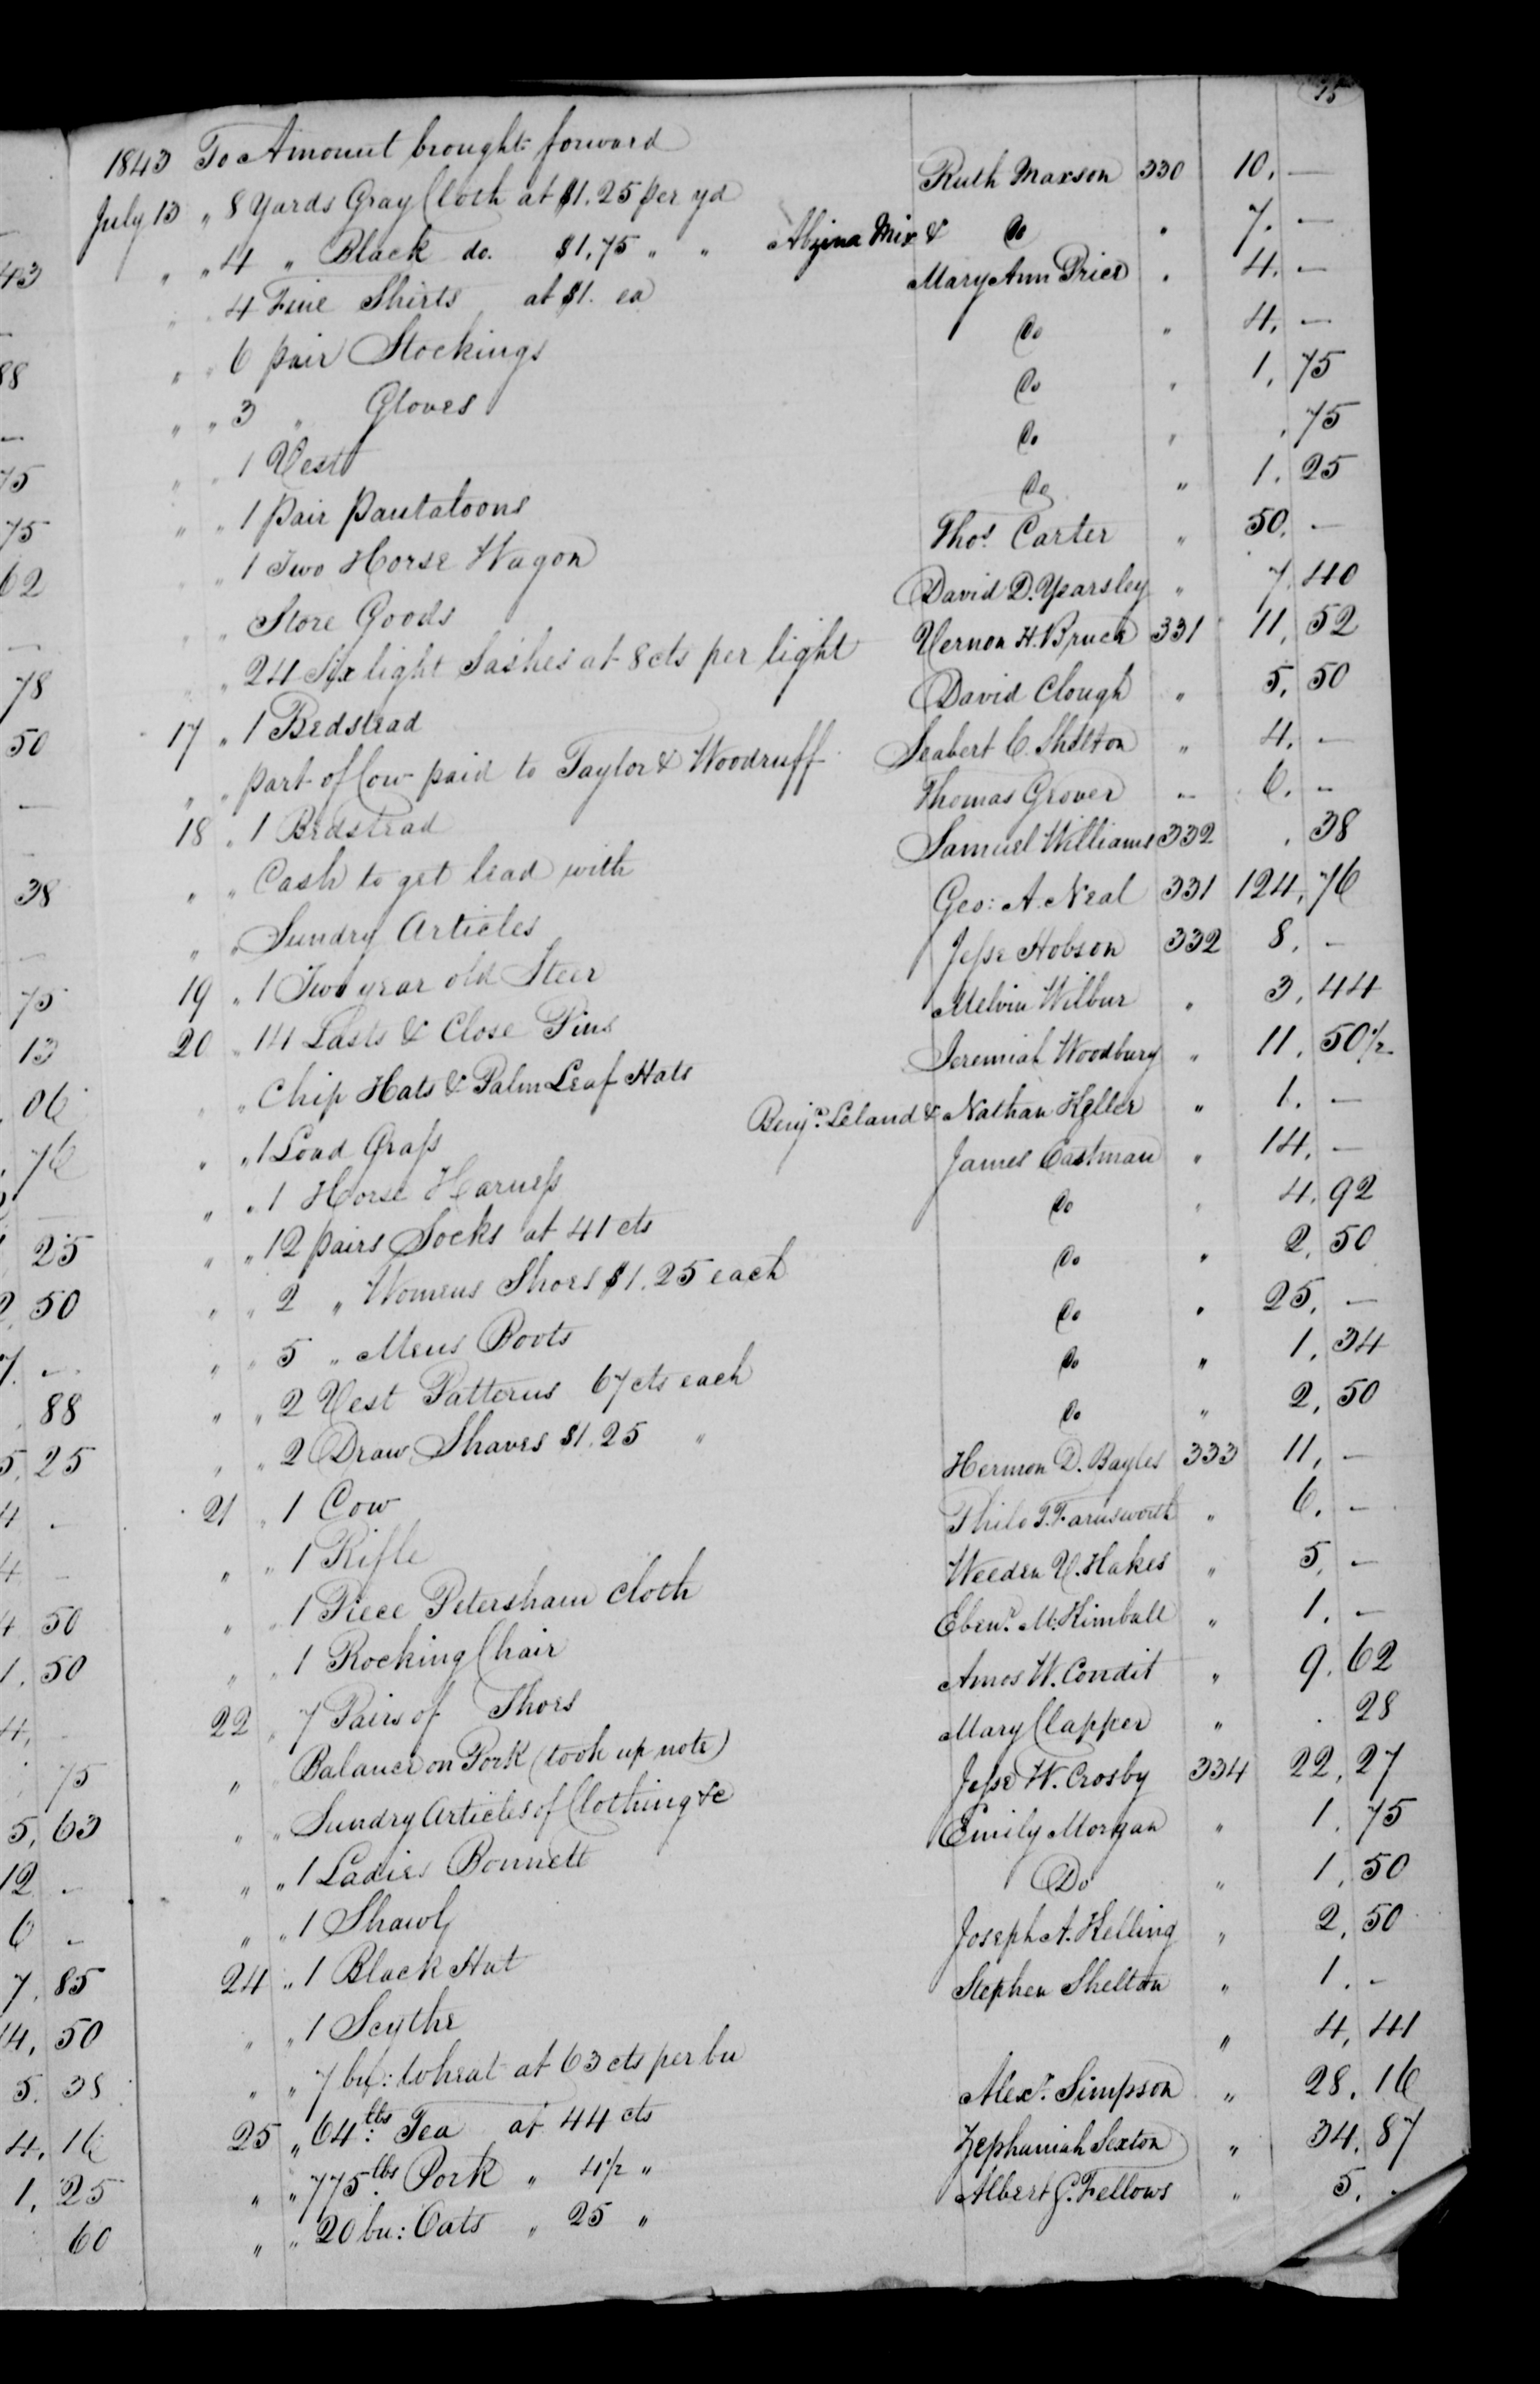 75
1843 To Amount brought forward
July 13 " 8 Yards Gray Cloth at $1.25 per yd Ruth Maxson 330 10. —
" " 4 " Black do. $1,75 " " Alzina Mix & Do " 7. —
" " 4 Fine Shirts at $1. ea Mary Ann Price " 4. —
" " 6 pair Stockings Do " 4. —
" " 3 " Gloves Do " 1, 75
" " 1 Vest Do " . 75
" " 1 pair pantaloons Do " 1. 25
" " 1 Two Horse Wagon Thos. Carter " 50. —
" " Store Goods David D. Yearsley " 7. 40
" " 24 Six light Sashes at 8 cts per light Vernon H. Bruce 331 11, 52
17 " 1 Bedstead David Clough " 5, 50
" " part of Cow paid to Taylor & Woodruff Seabert C. Shelton " 4. —
18 " 1 Bedstead Thomas Grover " 6. —
" " Cash to get lead with Samuel Williams 332 . 38
" " Sundry Articles Geo: A. Neal 331 124, 76
19 " 1 Two year old Steer Jesse Hobson 332 8. —
20 " 14 Lasts & Close Pins Melvin Wilbur " 3, 44
" " Chip Hats & Palm Leaf Hats Jeremiah Woodbury " 11. 50½
" " 1 Load Grass Benjn. Leland & Nathan Heller " 1. —
" " 1 Horse Harness James Eastman " 14. —
" " 12 pairs Socks at 41 cts Do " 4. 92
" " 2 " Womens Shoes $1.25 each Do " 2, 50
" " 5 " Mens Boots Do " 25, —
" " 2 Vest Patterns 67 cts each Do " 1, 34
" " 2 Draw Shaves $1.25 " Do " 2, 50
21 " 1 Cow Hermon D. Bayles 333 11, —
" " 1 Rifle Philo T. Farnsworth " 6. —
" " 1 Piece Petersham cloth Weeden V. Hakes " 5. —
" " 1 Rocking Chair Ebenr. M. Kimball " 1. —
22 " 7 Pairs of Shoes Amos W. Condit " 9. 62
" Balance on Pork (took up note) Mary Clapper " . 28
" " Sundry Articles of Clothing &c Jesse W. Crosby 334 22, 27
" " 1 Ladies Bonnett Emily Morgan " 1. 75
" " 1 Shawl Do " 1, 50
24 " 1 Black Hat Joseph A. Kelting " 2, 50
" " 1 Scythe Stephen Shelton " 1. —
" " 7 bu: wheat at 63 cts per bu " 4, 41
25 " 64 lbs: Tea at 44 cts Alexr. Simpson " 28. 16
" " 775 lbs. Pork " 4½ " Zephaniah Sexton " 34, 87
" " 20 bu: Oats " 25 " Albert G. Fellows " 5. -
43
—
88
—
75
75
62
—
78
50
—
—
38
—
75
13
06
76
—
25
2, 50
7. —
88
5, 25
4 —
4 —
4 50
1. 50
4, —
75
5, 63
12 —
6 —
7. 85
14, 50
5. 38
4, 16
1, 25
60